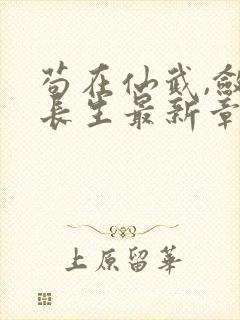 苟在仙武,敛
长生最新章
上原留華